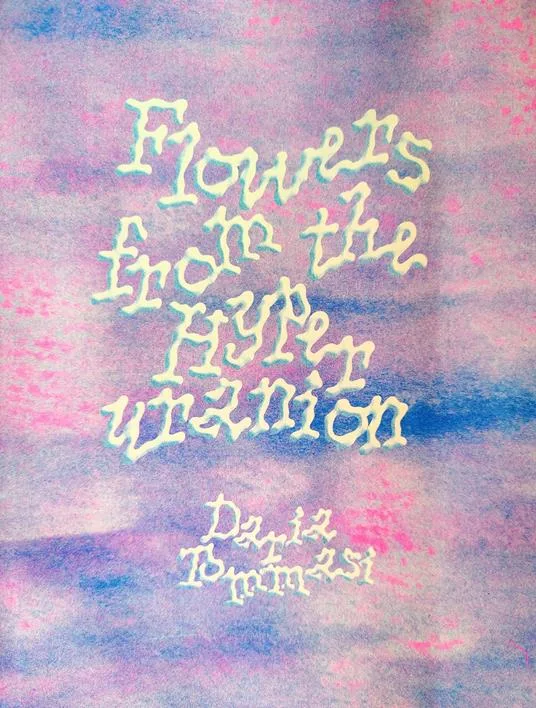 Flowers
from the
Hyper
uranion
Daria
Tommasi